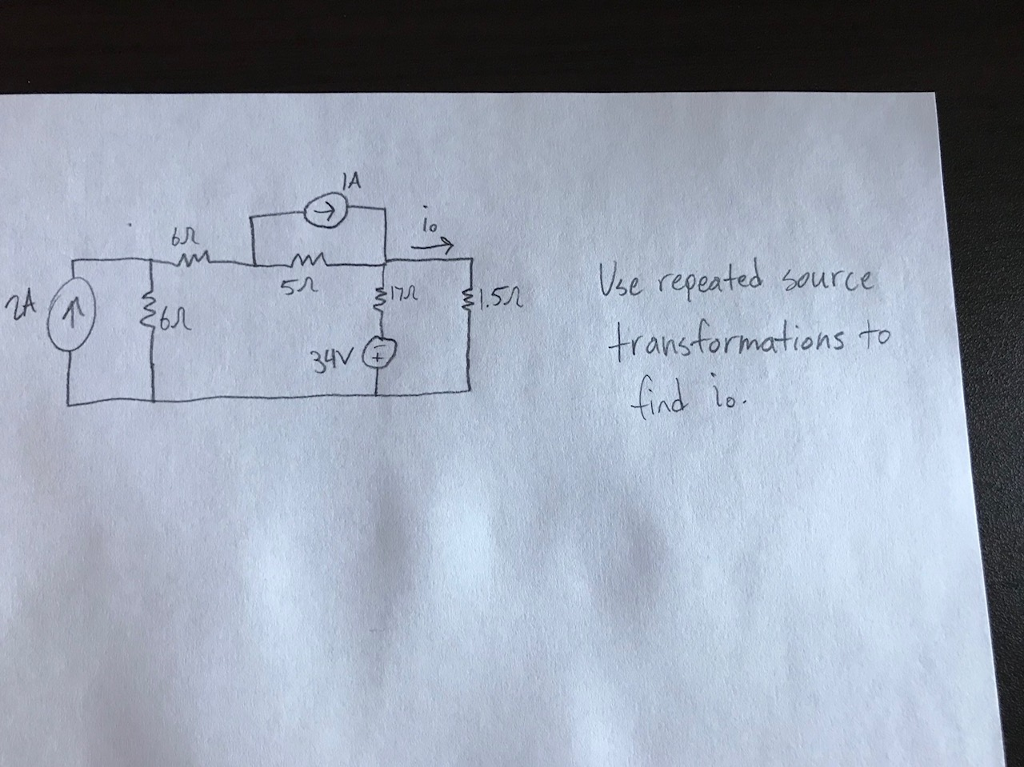 1A
i₀
6Ω
2A
5Ω
6Ω
17Ω
1.5Ω
34V
−
+
Use repeated source
transformations to
find i₀.